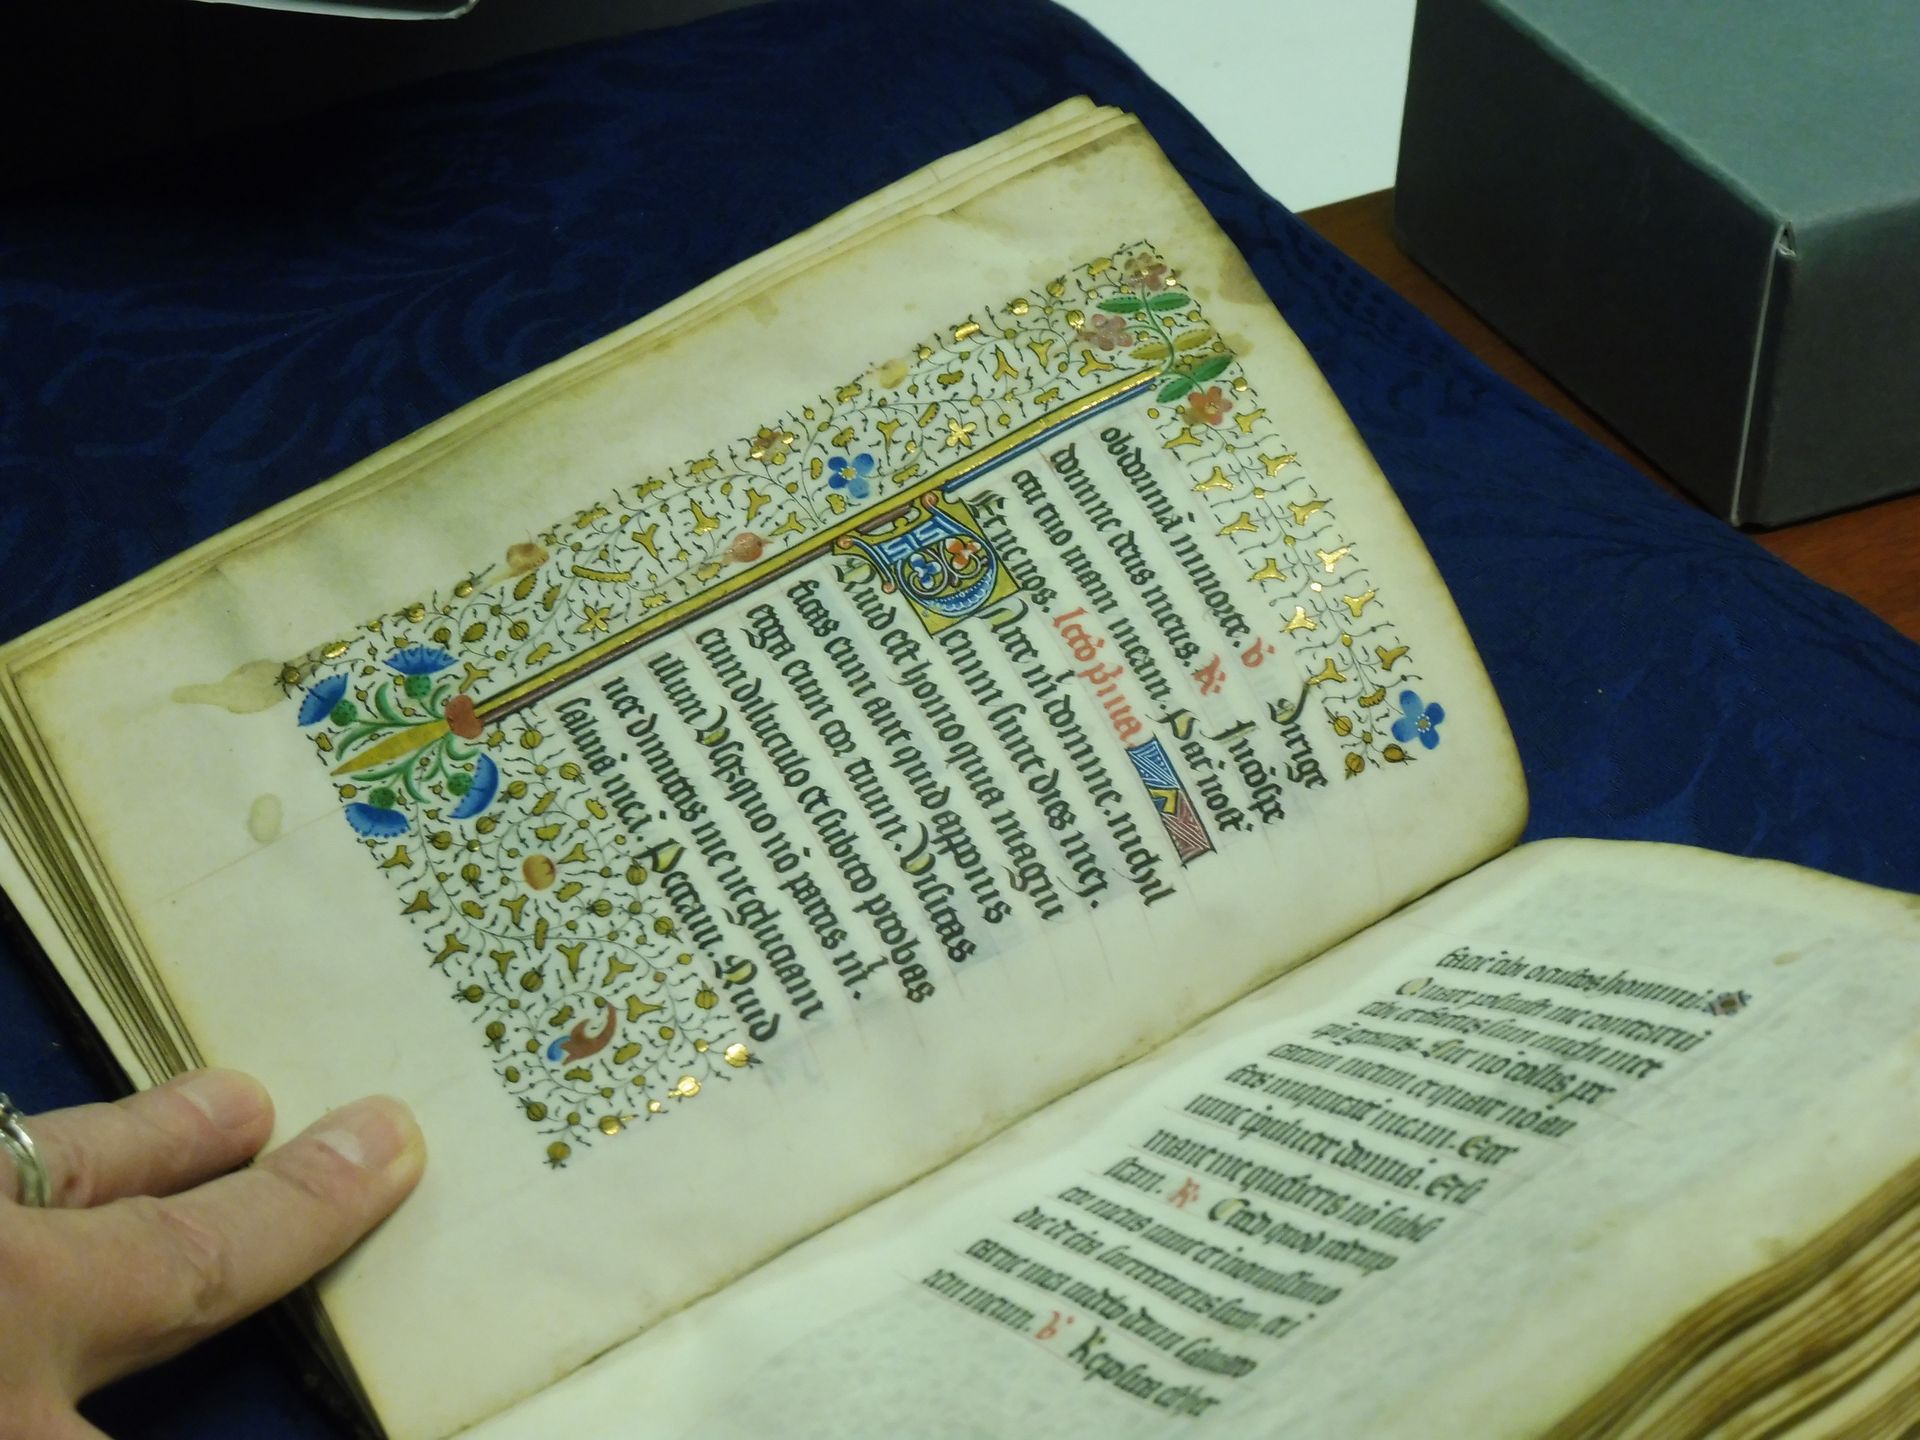 obdormiā in morte. v̄ Dirige
domine deus meus. R̄ In cōspe
ctu tuo uiam meam. Pat̄ nost̄.
Et ne nos. lectō prīma
Parce m̄ domine. nichyl
enim sunt dies mei.
Quid est homo quia magni
ficas eum aut quid apponis
erga eum cor tuum. Visitas
eum diluculo et subito probas
illum. Vsqzquo nō parcis m̄.
nec dimittis me ut glutiam
saliuā meā. Peccaui. Quid
faciā tibi o custos hominū.
Quare posuisti me contrariū
tibi et factus sum michi met
ipi grauis. Cur nō tollis pec
catum meum et quare nō au
fers iniquitatē meam. Ecce
nunc ī puluere dormiā. Et si
mane me quesieris nō subsi
stam. R̄ Credo quod redemp
tor meus uiuit et in nouissimo
die de t̄ra surrecturus sum. et ī
carne mea uidebo deum saluato
rem meum. v̄ Reposita